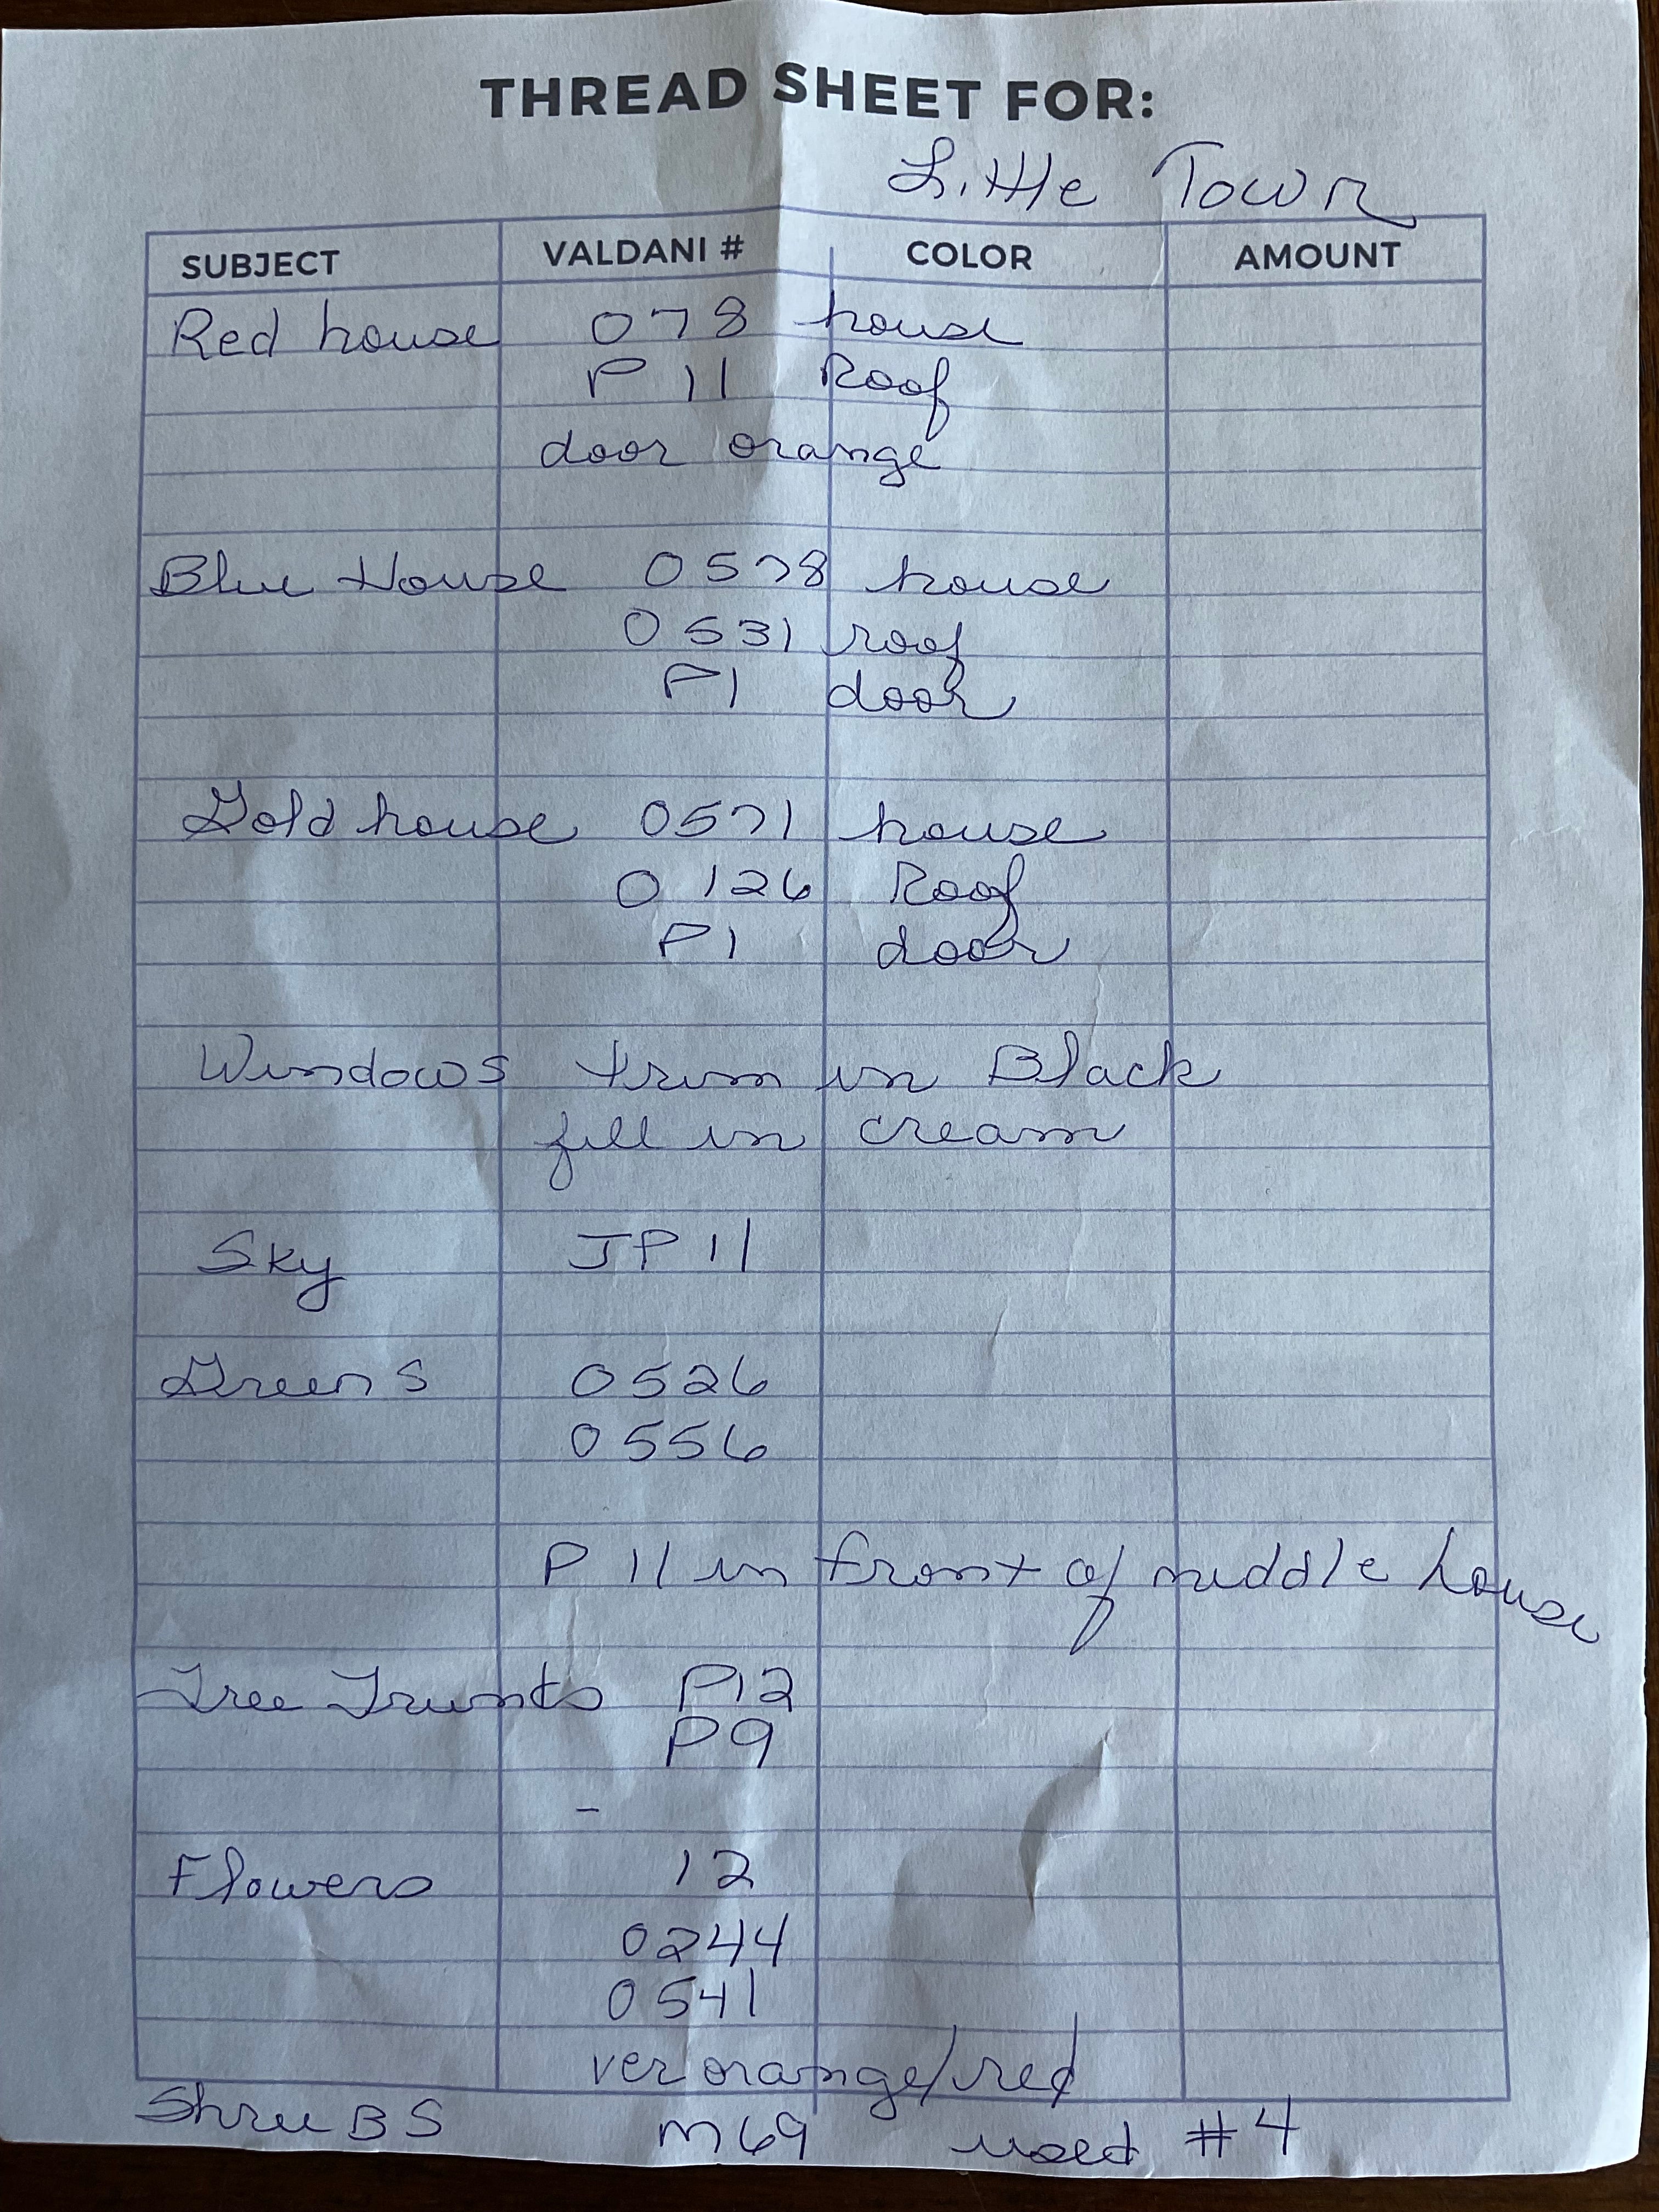 THREAD SHEET FOR:
Little Town
SUBJECT VALDANI # COLOR AMOUNT
Red house 078 house
P 11 Roof
door orange
Blue House 0578 house
0531 roof
P1 door
Gold house 0571 house
0126 Roof
P1 door
Windows trim in Black
fill in cream
Sky JP 11
Greens 0526
0556
P 11 in front of middle house
Tree Trunks P12
P9
-
Flowers 12
0244
0541
ver orange/red
ShruBS M69 used #4